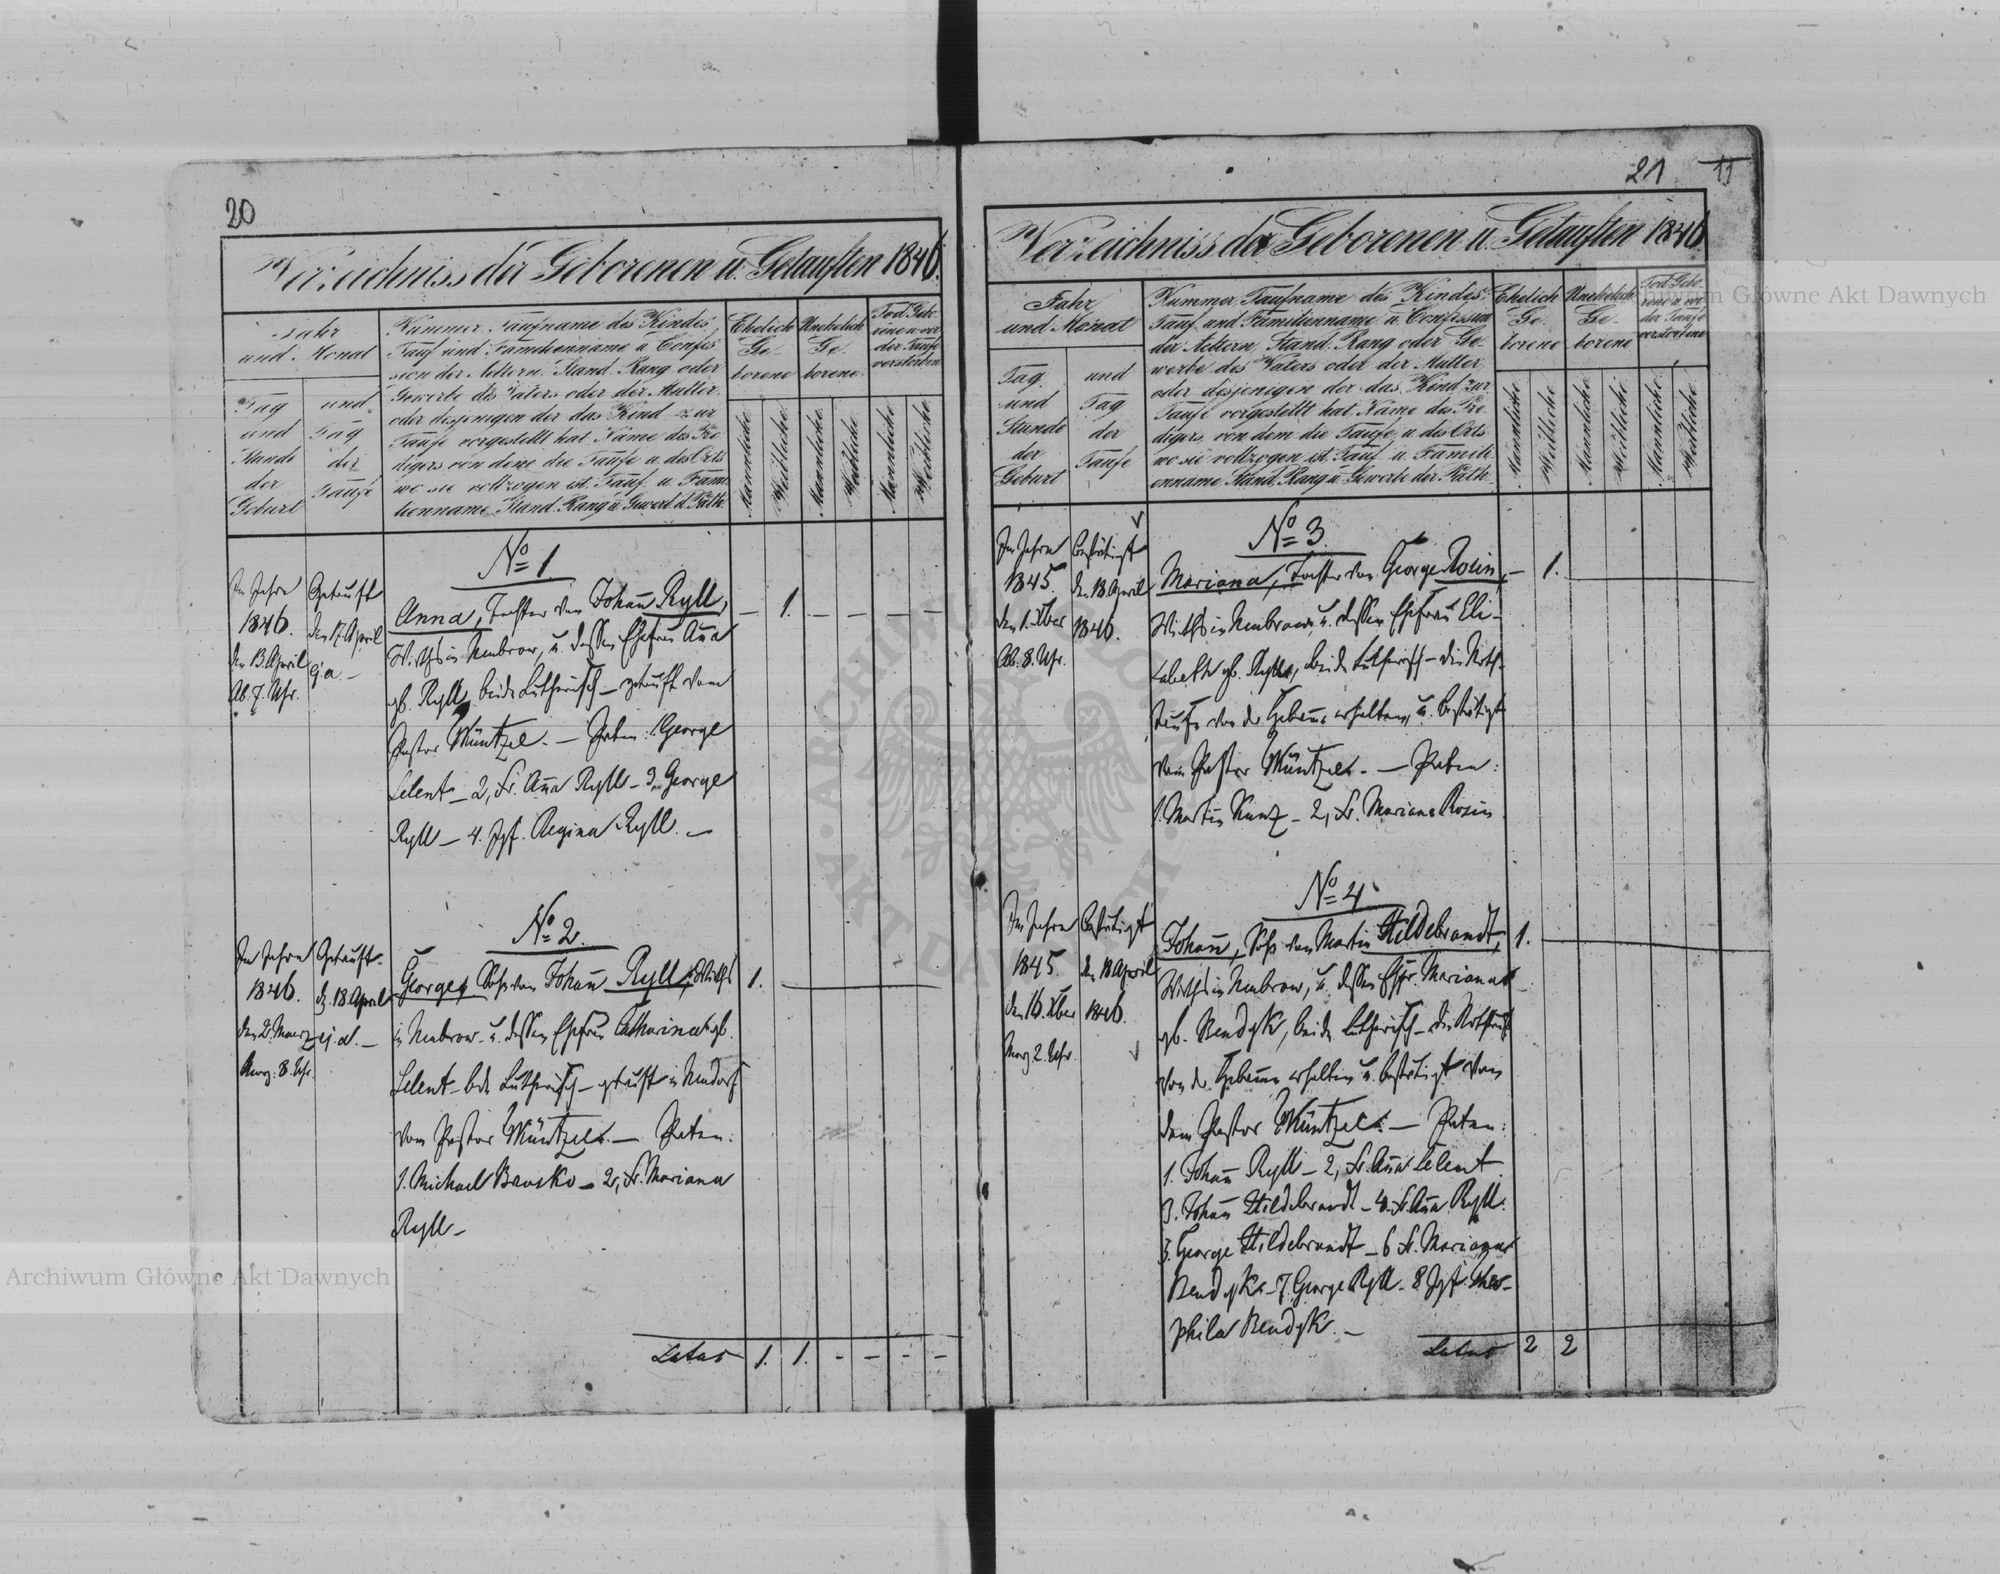 20
Verzeichniss der Geborenen u. Getauften 1846.
Jahr
und Monat
Tag
und
Stunde
der
Geburt
und
Tag
der
Taufe
Nummer Taufname des Kindes
Tauf und Familienname u Confes
sion der Aeltern. Stand. Rang oder
Gewerbe des Vaters oder der Mutter.
oder desjenigen der das Kind zur
Taufe vorgestellt hat. Name des Pre
digers von dem die Taufe u. des Orts
wo sie vollzogen ist. Tauf. u Fami
lienname, Stand Rang u Gewerb d. Path.
Ehelich
Ge-
borene
Unehelich
Ge-
borene
Tod Gebo-
rene u. vor
der Taufe
verstorben
Männliche
Weibliche
Männliche
Weibliche
Männliche
Weibliche
Im Jahre
1846.
den 13 April
Ab. 7. Uhr.
Getauft
den 17. April
ej. a. –
No 1.
Anna, Tochter von Johan̄ Ryll,
Wirths in Neubrow, u. dessen Ehefrau An̄a
gb. Ryll, beide Lutherisch – getauft vom
Pastor Müntzel. – Paten: 1. George
Lelent – 2, Fr. An̄a Ryll – 3. George
Ryll – 4. Jgf. Regina Ryll. –
– 1. – – – –
Im Jahre
1846.
den 2. Maerz
Morg. 8. Uhr.
Getauft
d. 18 April
ej. a. –
No 2.
George, Sohn von Johan̄ Ryll, Wirths
in Neubrow u. dessen Ehefrau Catharina gb.
Lelent bde Lutherisch – getauft in Neudorf
vom Pastor Müntzel. – Paten:
1. Michael Brosko – 2, Fr. Mariana
Ryll –
1.
Latus 1. 1. – – – –
21
11
Verzeichniss der Geborenen u. Getauften 1846
Jahr
und Monat
Tag
und
Stunde
der
Geburt
und
Tag
der
Taufe
Nummer, Taufname des Kindes
Tauf und Familienname u. Confession
der Aeltern, Stand, Rang oder Ge-
werbe des Vaters oder der Mutter
oder desjenigen der das Kind zur
Taufe vorgestellt hat. Name des Pre
digers, von dem die Taufe u. des Orts
wo sie vollzogen ist. Tauf. u. Famili
enname Stand, Rang u. Gewerbe der Path.
Ehelich
Ge-
borene
Unehelich
Ge-
borene
Tod Gebo-
rene u. vor
der Taufe
verstorbene
Männliche
Weibliche
Männliche
Weibliche
Männliche
Weibliche
Im Jahre
1845.
den 1. Xber
Ab. 8. Uhr.
Bestätigt
den 18 April
1846.
No 3.
Mariana, Tochter von George Rosin,
Wirths in Neubrow, u. dessen Ehefrau Eli-
sabeth gb. Ryll, beide Lutherisch – die Noth-
taufe von der Hebam̄e erhalten, u. bestätigt
vom Pastor Müntzel. – Paten:
1. Martin Kunz – 2, Fr. Mariana Rosin
– 1.
Im Jahre
1845.
den 16. Xber
Morg 2. Uhr.
Bestätigt
den 18 April
1846.
No 4.
Johan̄, Sohn von Martin Hildebrandt,
Wirths in Neubrow, u. dessen Ehfr. Mariana
gb. Bendyk, beide Lutherisch – die Nothtaufe
von der Hebam̄e erhalten u. bestätigt von
dem Pastor Müntzel. – Paten:
1. Johan̄ Ryll – 2, Fr. An̄a Lelent
3. Johan̄ Hildebrandt – 4. Fr. An̄a Ryll.
5. George Hildebrandt – 6 Fr. Mariana
Bendyk – 7. George Ryll – 8 Jgf. Theo-
phila Bendyk. –
1.
Latus 2 2
Archiwum Główne Akt Dawnych
Archiwum Główne Akt Dawnych